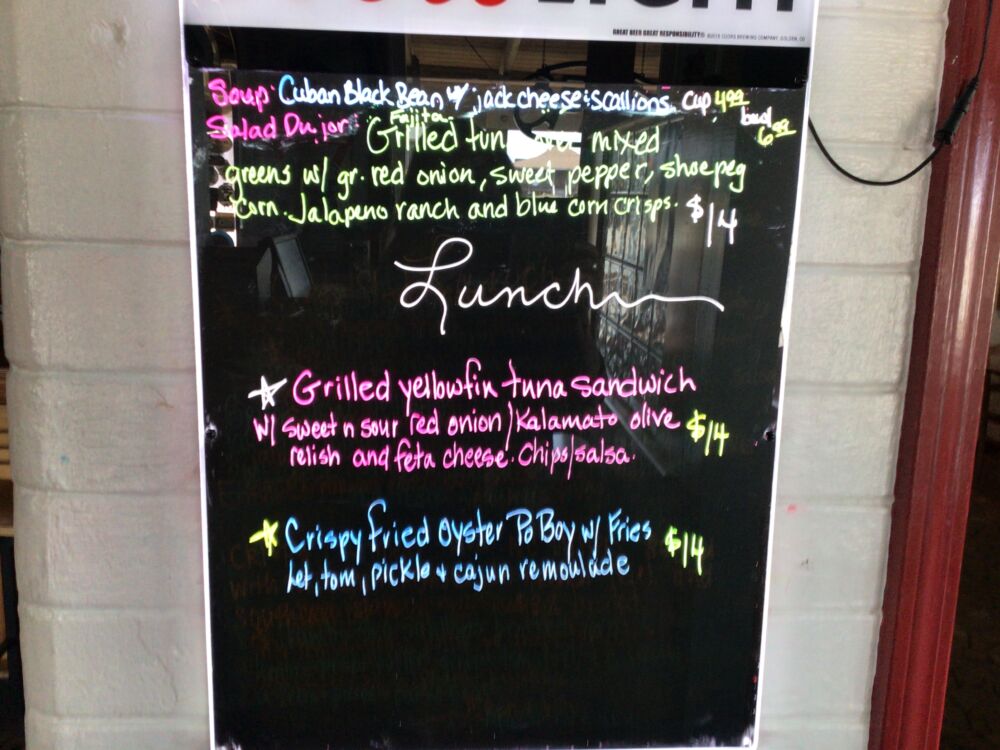 LIGHT
GREAT BEER GREAT RESPONSIBILITY® COORS BREWING COMPANY, GOLDEN, CO
Soup: Cuban Black Bean w/ jack cheese & scallions. cup 4.99
bowl 6.99
Salad Du jor: Fajita
Grilled tuna over mixed
greens w/ gr. red onion, sweet pepper, shoepeg
corn. Jalapeno ranch and blue corn crisps. $14
Lunch
Grilled yellowfin tuna sandwich
w/ sweet n sour red onion/Kalamato olive $14
relish and feta cheese. Chips/salsa.
Crispy fried oyster Po Boy w/ Fries $14
Let, tom, pickle & cajun remoulade